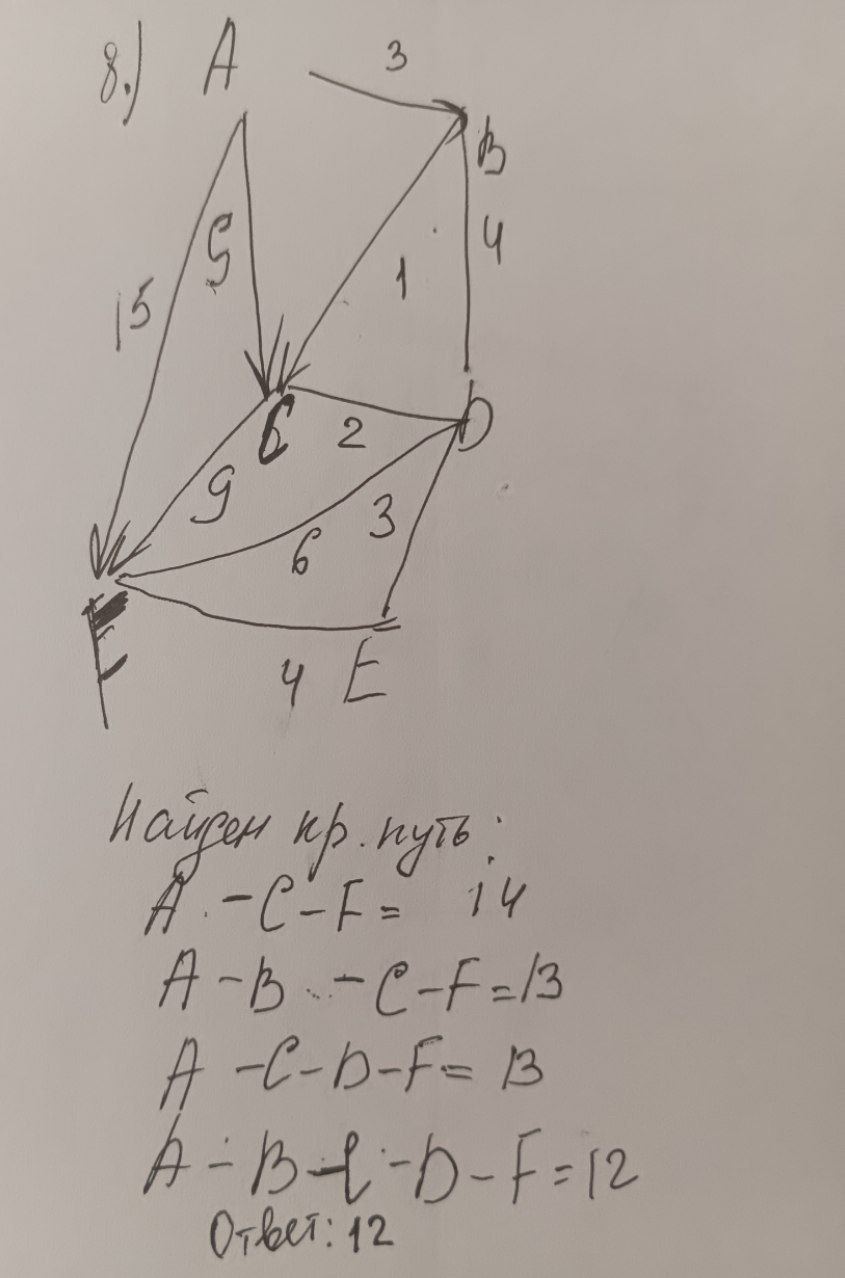 8.) A
3
B
4
5
1
15
C
2
D
9
3
6
F
4 E
Найден кр. путь:
A - C - F = 14
A - B - C - F = 13
A - C - D - F = 13
A - B - C - D - F = 12
Ответ: 12